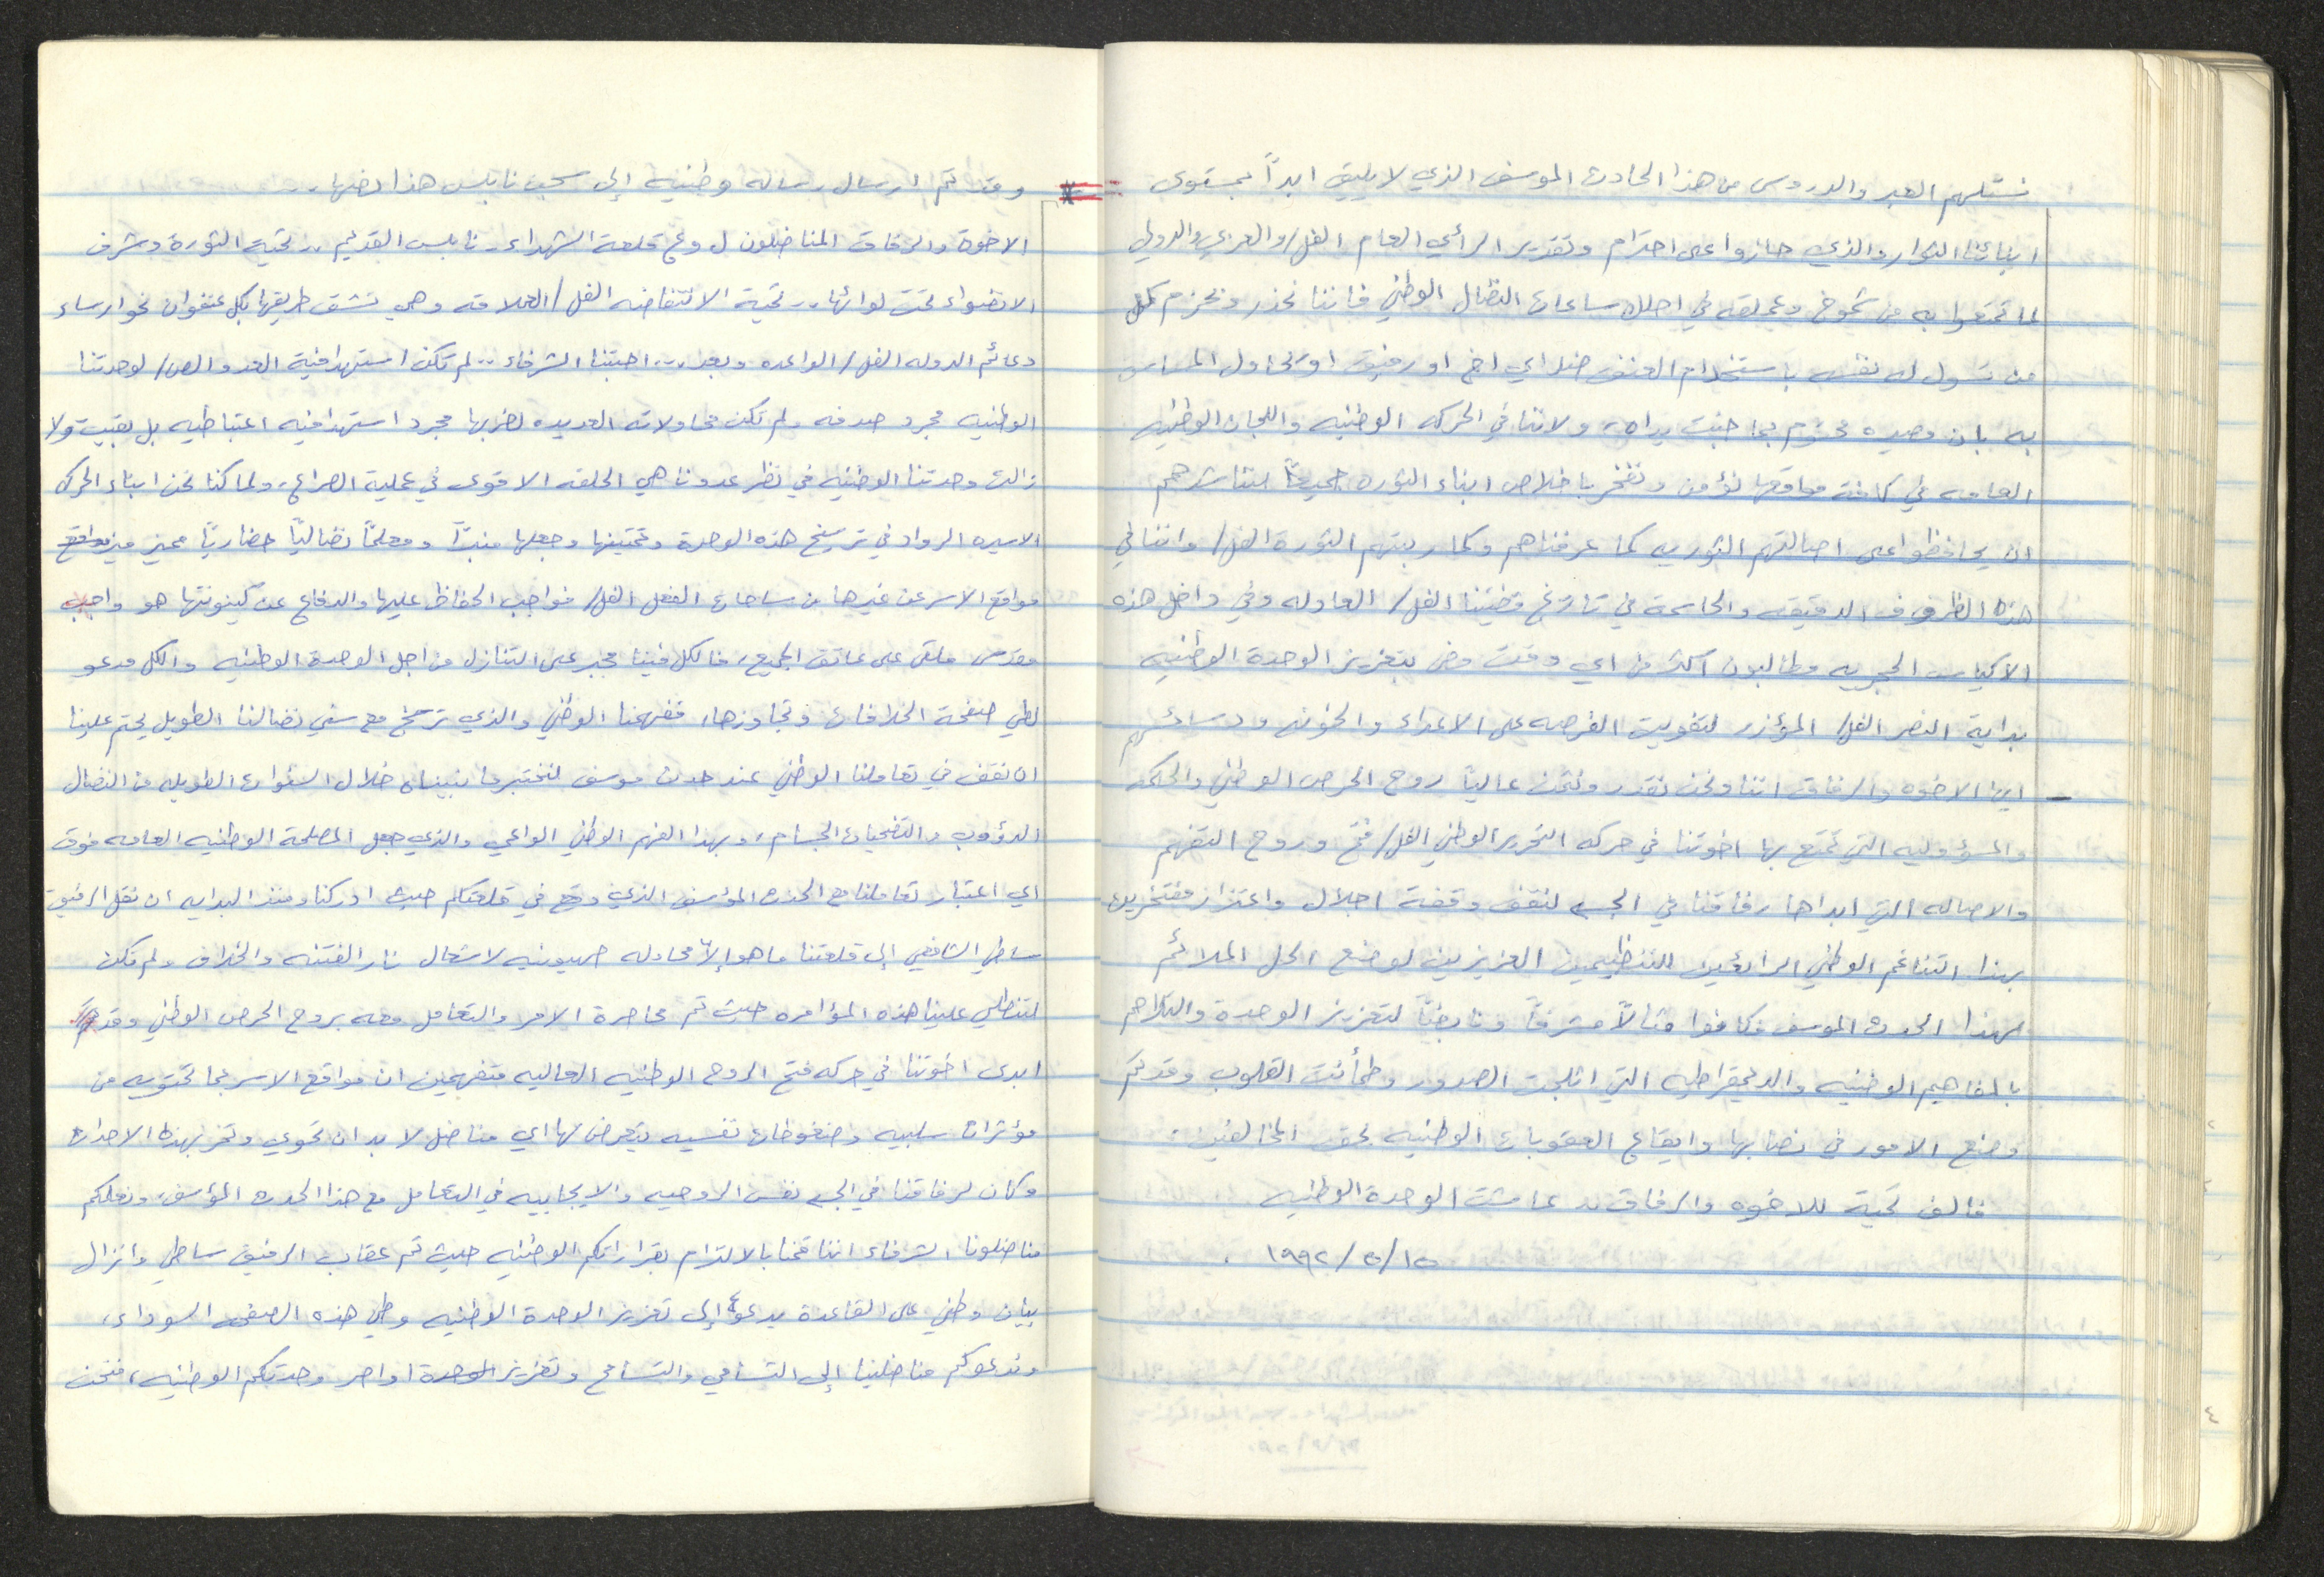 نستلهم العبر والدروس من هذا الحادث الموسف الذي لا يليق ابداً بمستوى
ابنائنا الثوار والذي حازوا على احترام وتقدير الرأي العام الفل/ والعربي والدولي
لما تمتعوا به من شموخ وعملقه في احلك ساعات النضال الوطني فاننا نحذر ونحزم كل
من تسول له نفسه باستخدام العنف ضد اي اخ او رفيق او يحاول المساس
به بان مصيره محتوم بما جنت يداه، ولاننا في الحركه الوطنيه واللجان الوطنيه
العامه في كافة مواقعها نؤمن ونفخر باخلاص ابناء الثوره جميعاً لنناشدهم
ان يحافظوا على اصالتهم الثوريه كما عرفناهم وكما ربتهم الثورة الفل/ واننا في
هذه الظروف الدقيقه والحاسمة في تاريخ قضيتنا الفل/ العادله وفي داخل هذه
الاكياس الحجريه مطالبون اكثر من اي وقت مضى بتعزيز الوحدة الوطنيه
بداية النصر الفل/ المؤزر لتفويت الفرصه على الاعداء والخونه ودسائسهم
- ايها الاخوه والرفاق اننا ونحن نقدر ونثمن عالياً روح الحرص الوطني والحكمه
والمسؤوليه التي تمتع بها اخوتنا في حركه التحرير الوطني الفل/ فتح وروح التفهم
والاصاله التي ابداها رفاقنا في الجبهه لنقف وقفة اجلال واعتزاز مفتخرين
بهذا التناغم الوطني الرائد بين التنظيمين العزيزين لوضع الحل الملائم
لهذا الحدث الموسف فكانوا مثالاً مشرفاً ونابضاً لتعزيز الوحدة والتلاحم
بالمفاهيم الوطنيه والديمقراطيه التي اثلجت الصدور وطمأنت القلوب وقد تم
وضع الامور في نصابها وايقاع العقوبات الوطنيه بحق المخالفين.
فالف تحية للاخوه والرفاق .. عاشت الوحدة الوطنيه
١٥/٥/١٩٩٢ .
* وقد تم ارسال رساله وطنيه إلى سجن نابلس هذا نصها ..
الاخوة والرفاق المناضلون ل وع قلعة الشهداء - نابلس القديم .. تحية الثورة وشرف
الانضواء تحت لوائها .. تحية الانتفاضه الفل/ العملاقه وهي تشق طريقها بكل عنفوان نحو ارساء
دعائم الدوله الفل/ الواعده وبعد ... احبتنا الشرفاء .. لم تكن استهدافية العدو الص/ لوحدتنا
الوطنيه مجرد صدفه ولم تكن محاولاته العديده لضربها مجرد استهدافيه اعتباطيه بل بقيت ولا
زالت وحدتنا الوطنيه في نظر عدونا هي الحلقه الاقوى في عملية الصراع، ولما كنا نحن ابناء الحركه
الاسيره الرواد في ترسيخ هذه الوحدة وتمتينها وجعلها منبراً ومعلماً نضالياً حضارياً مميز ميز مواقع
مواقع الاسر عن غيرها من ساحات الفعل الفل/ فواجب الحفاظ عليها والدفاع عن كينونتها هو واجب
مقدس ملقى على عاتق الجميع، فالكل فينا مجبر على التنازل من اجل الوحدة الوطنيه والكل مدعو
لطي صفحة الخلافات وتجاوزها، ففهمنا الوطني والذي ترسخ مع سني نضالنا الطويل يحتم علينا
ان نقف في تعاملنا الوطني عند حدث موسف لنختبر ما بنيناه خلال السنوات الطويله من النضال
الدؤوب والتضحيات الجسام، وبهذا الفهم الوطني الواعي والذي جعل المصلحة الوطنيه العامه فوق
اي اعتبار تعاملنا مع الحدث المؤسف الذي وقع في قلعتكم حيث ادركنا ومنذ البدايه ان نقل الرفيق
ساطي الشافعي إلى قلعتنا ما هو إلا محاوله صهيونيه لاشعال نار الفتنه والخلاف ولم تكن
لتنطلي علينا هذه المؤامره حيث تم محاصرة الامر والتعامل معه بروح الحرص الوطني وقد
ابدى اخوتنا في حركه فتح الروح الوطنيه العاليه متفهمين ان مواقع الاسر بما تحتويه من
مؤثرات سلبيه وضغوطات نفسيه يتعرض لها اي مناضل لا بد ان تحوي وتمر بهذه الاحداث
وكان لرفاقنا في الجبهه نفس الروحيه والايجابيه في التعامل مع هذا الحدث المؤسف، ونعلمكم
مناضلونا الشرفاء اننا قمنا بالالتزام بقراراتكم الوطنيه حيث تم عقاب الرفيق ساطي وانزال
بيان وطني على القاعدة يدعو إلى تعزيز الوحدة الوطنيه وطي هذه الصفحه السوداء،
وندعوكم مناضلينا إلى التسامي والتسامح وتعزيز الوحدة اواصر وحدتكم الوطنيه، فنحن